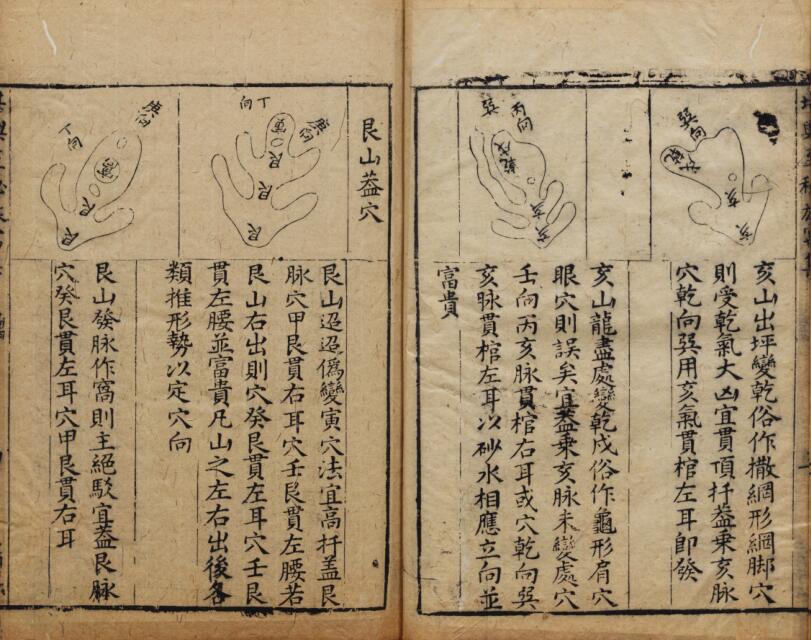 亥山出坪變乾俗作撒網形網脚穴
則受乾氣大凶宜貫頂扦葢乘亥脉
穴乾向巽用亥氣貫棺左耳卽發
亥山龍盡處變乾戍俗作龜形肩穴
眼穴則誤矣宜葢乗亥脉未變處穴
壬向丙亥脉貫棺右耳或穴乾向巽
亥脉貫棺左耳以砂水相應立向並
富貴
巽向
乾
亥
亥
巽
丙向
乾戍
亥
亥
艮山葢穴
艮山迢迢僞變寅穴法宜高扦盖艮
脉穴甲艮貫右耳穴壬艮貫左腰若
艮山右出則穴癸艮貫左耳穴壬艮
貫左腰並富貴凡山之左右出後各
類推形勢以定穴向
艮山發脉作窩則主絕駁宜葢艮脉
穴癸艮貫左耳穴甲艮貫右耳
庚向
丁向
寅
艮
艮
艮
庚向
丁向
艮
艮